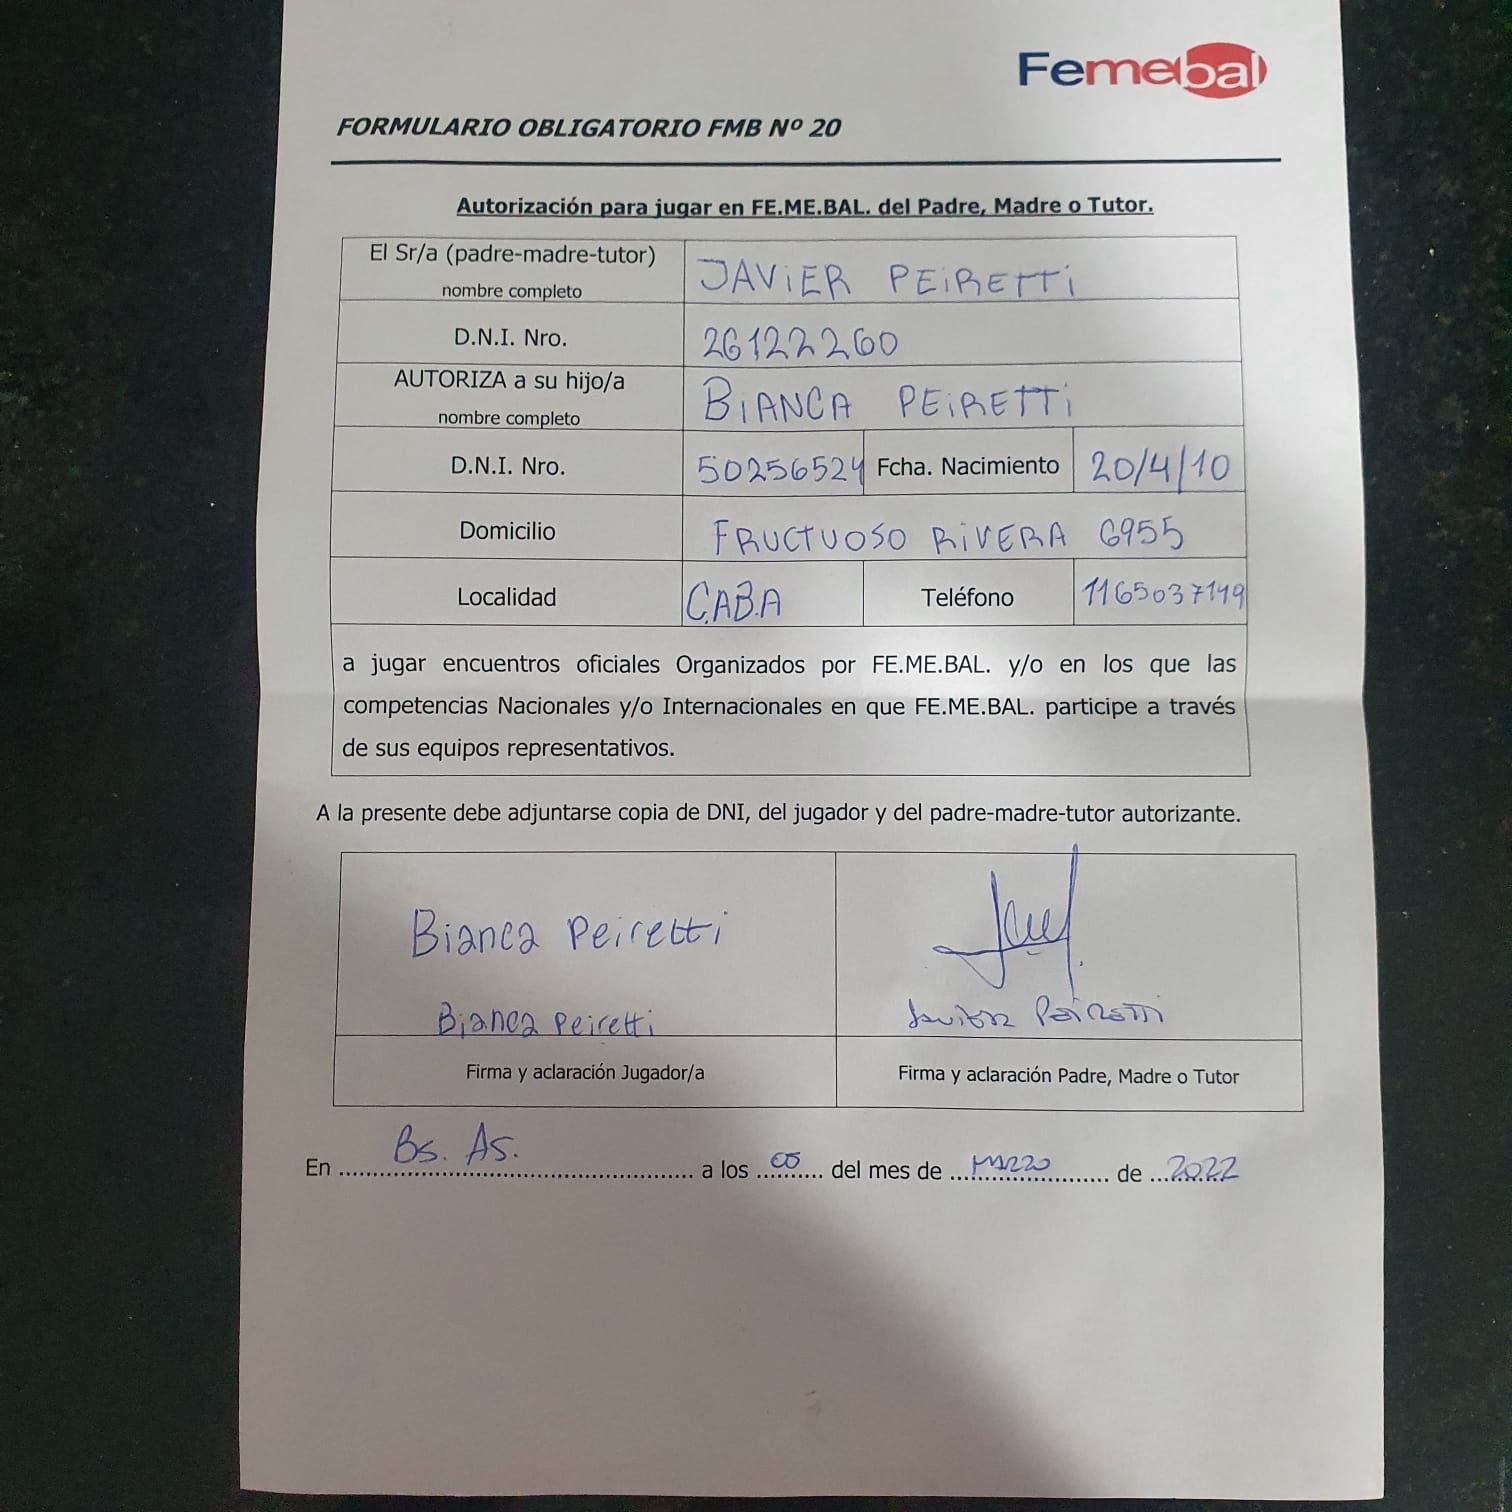 Femebal
FORMULARIO OBLIGATORIO FMB Nº 20
Autorización para jugar en FE.ME.BAL. del Padre, Madre o Tutor.
El Sr/a (padre-madre-tutor)
nombre completo
JAViER PEiRETTi
D.N.I. Nro.
26122260
AUTORIZA a su hijo/a
nombre completo
BiANCA PEiRETTi
D.N.I. Nro.
50256524
Fcha. Nacimiento
20/4/10
Domicilio
FRUCTUOSO RiVERA 6955
Localidad
C.A.B.A
Teléfono
1165037149
a jugar encuentros oficiales Organizados por FE.ME.BAL. y/o en los que las
competencias Nacionales y/o Internacionales en que FE.ME.BAL. participe a través
de sus equipos representativos.
A la presente debe adjuntarse copia de DNI, del jugador y del padre-madre-tutor autorizante.
Bianca Peiretti
Bianca Peiretti
Firma y aclaración Jugador/a
Javier Peiretti
Firma y aclaración Padre, Madre o Tutor
En Bs. As. a los del mes de Marzo de 2022